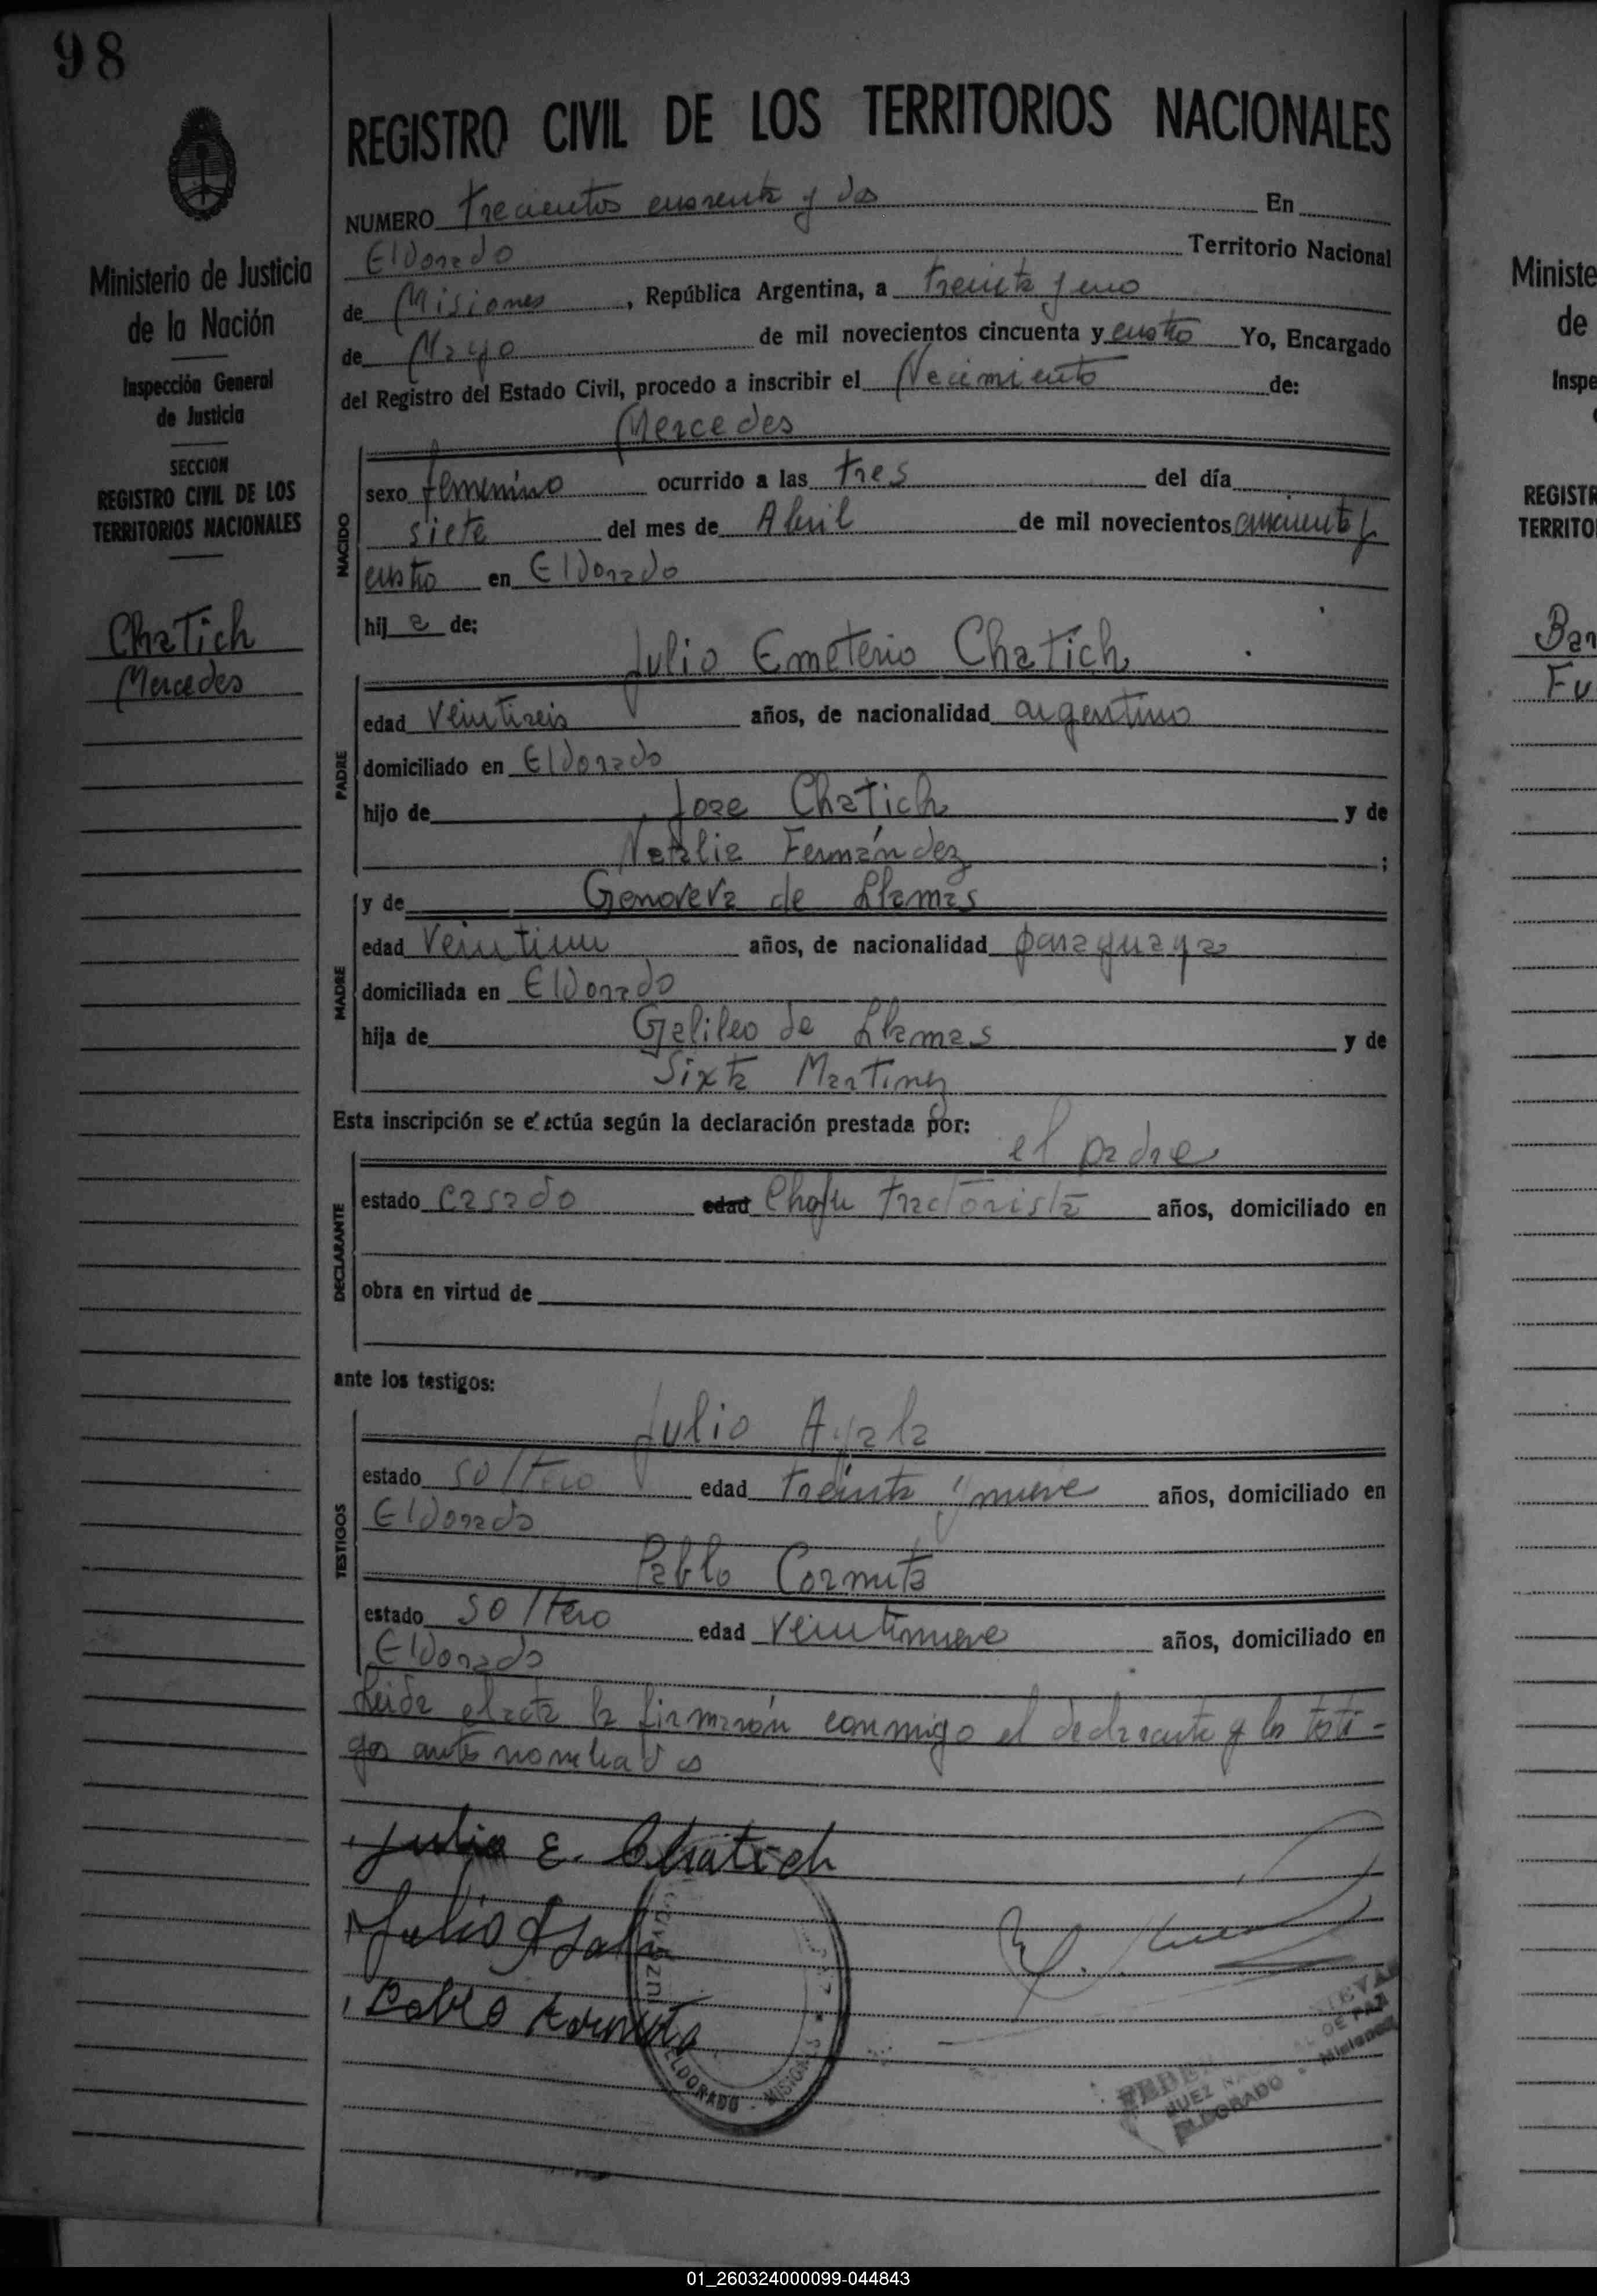 98
REGISTRO CIVIL DE LOS TERRITORIOS NACIONALES
NUMERO Trecientos cuarenta y dos En
ElDorado Territorio Nacional
de Misiones, República Argentina, a treinta y uno
de Mayo de mil novecientos cincuenta y cuatro Yo, Encargado
del Registro del Estado Civil, procedo a inscribir el Necimiento de:
Mercedes
Ministerio de Justicia
de la Nación
Inspección General
de Justicia
SECCION
REGISTRO CIVIL DE LOS
TERRITORIOS NACIONALES
Chatich
Mercedes
NACIDO
sexo femenino ocurrido a las tres del día
siete del mes de Abril de mil novecientos cincuenta y
cuatro en ElDorado
hij a de:
Julio Emeterio Chatich
PADRE
edad Veintiseis años, de nacionalidad argentino
domiciliado en ElDorado
hijo de Jose Chatich y de
Natalia Fernández ;
MADRE
y de Genoveva de Llamas
edad Veintiun años, de nacionalidad paraguaya
domiciliada en ElDorado
hija de Galileo de Llamas y de
Sixta Martinez
Esta inscripción se efectúa según la declaración prestada por:
el padre
DECLARANTE
estado casado edad Chofer tractorista años, domiciliado en
obra en virtud de
ante los testigos:
Julio Ayala
TESTIGOS
estado soltero edad treinta y nueve años, domiciliado en
ElDorado
Pablo Cormuta
estado soltero edad Veintinueve años, domiciliado en
ElDorado
Leida el acta la firmarón conmigo el declarante y los testi-
gos ante nombrados
Julio E. Chatich
Julio Ayala
Pablo Kormuta
ELDORADO - MISIONES
JUEZ DE PAZ
ELDORADO - Misiones
Ministe
de
Inspe
REGISTR
TERRITO
Bar
Fu
01_260324000099-044843